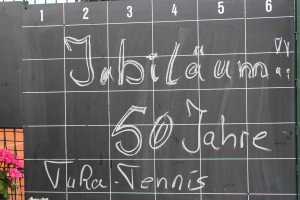 1 2 3 4 5 6
Jubiläum
50 Jahre
TuRa-Tennis